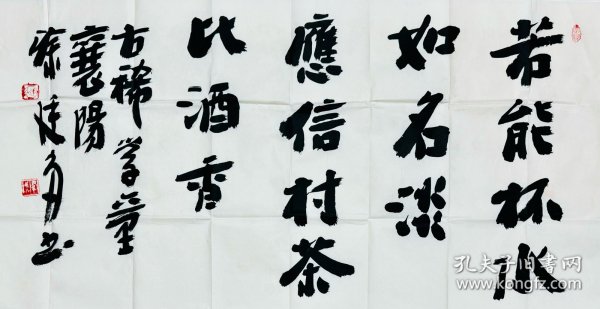 若能杯水
如名淡
應信村茶
比酒香
古稀学童
襄陽
孔夫子旧书网
www.kongfz.com